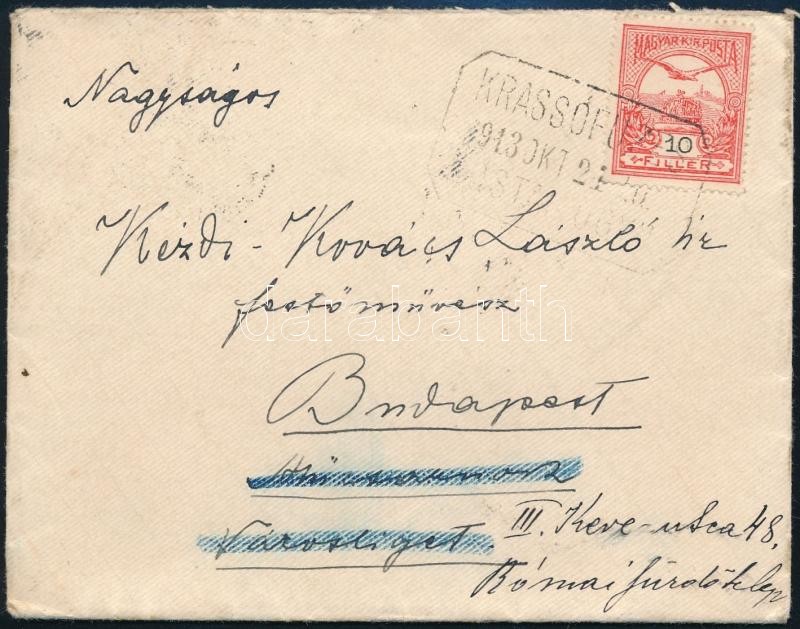 Nagyságos
MAGYAR KIR. POSTA
10
FILLÉR
KRASSÓFÜ
913 OKT 21
Kézdi-Kovács László úr
festőművész
darabanth
Budapest
Műcsarnok
Városliget.
III. Keve-utca 48.
Római fürdőtelep